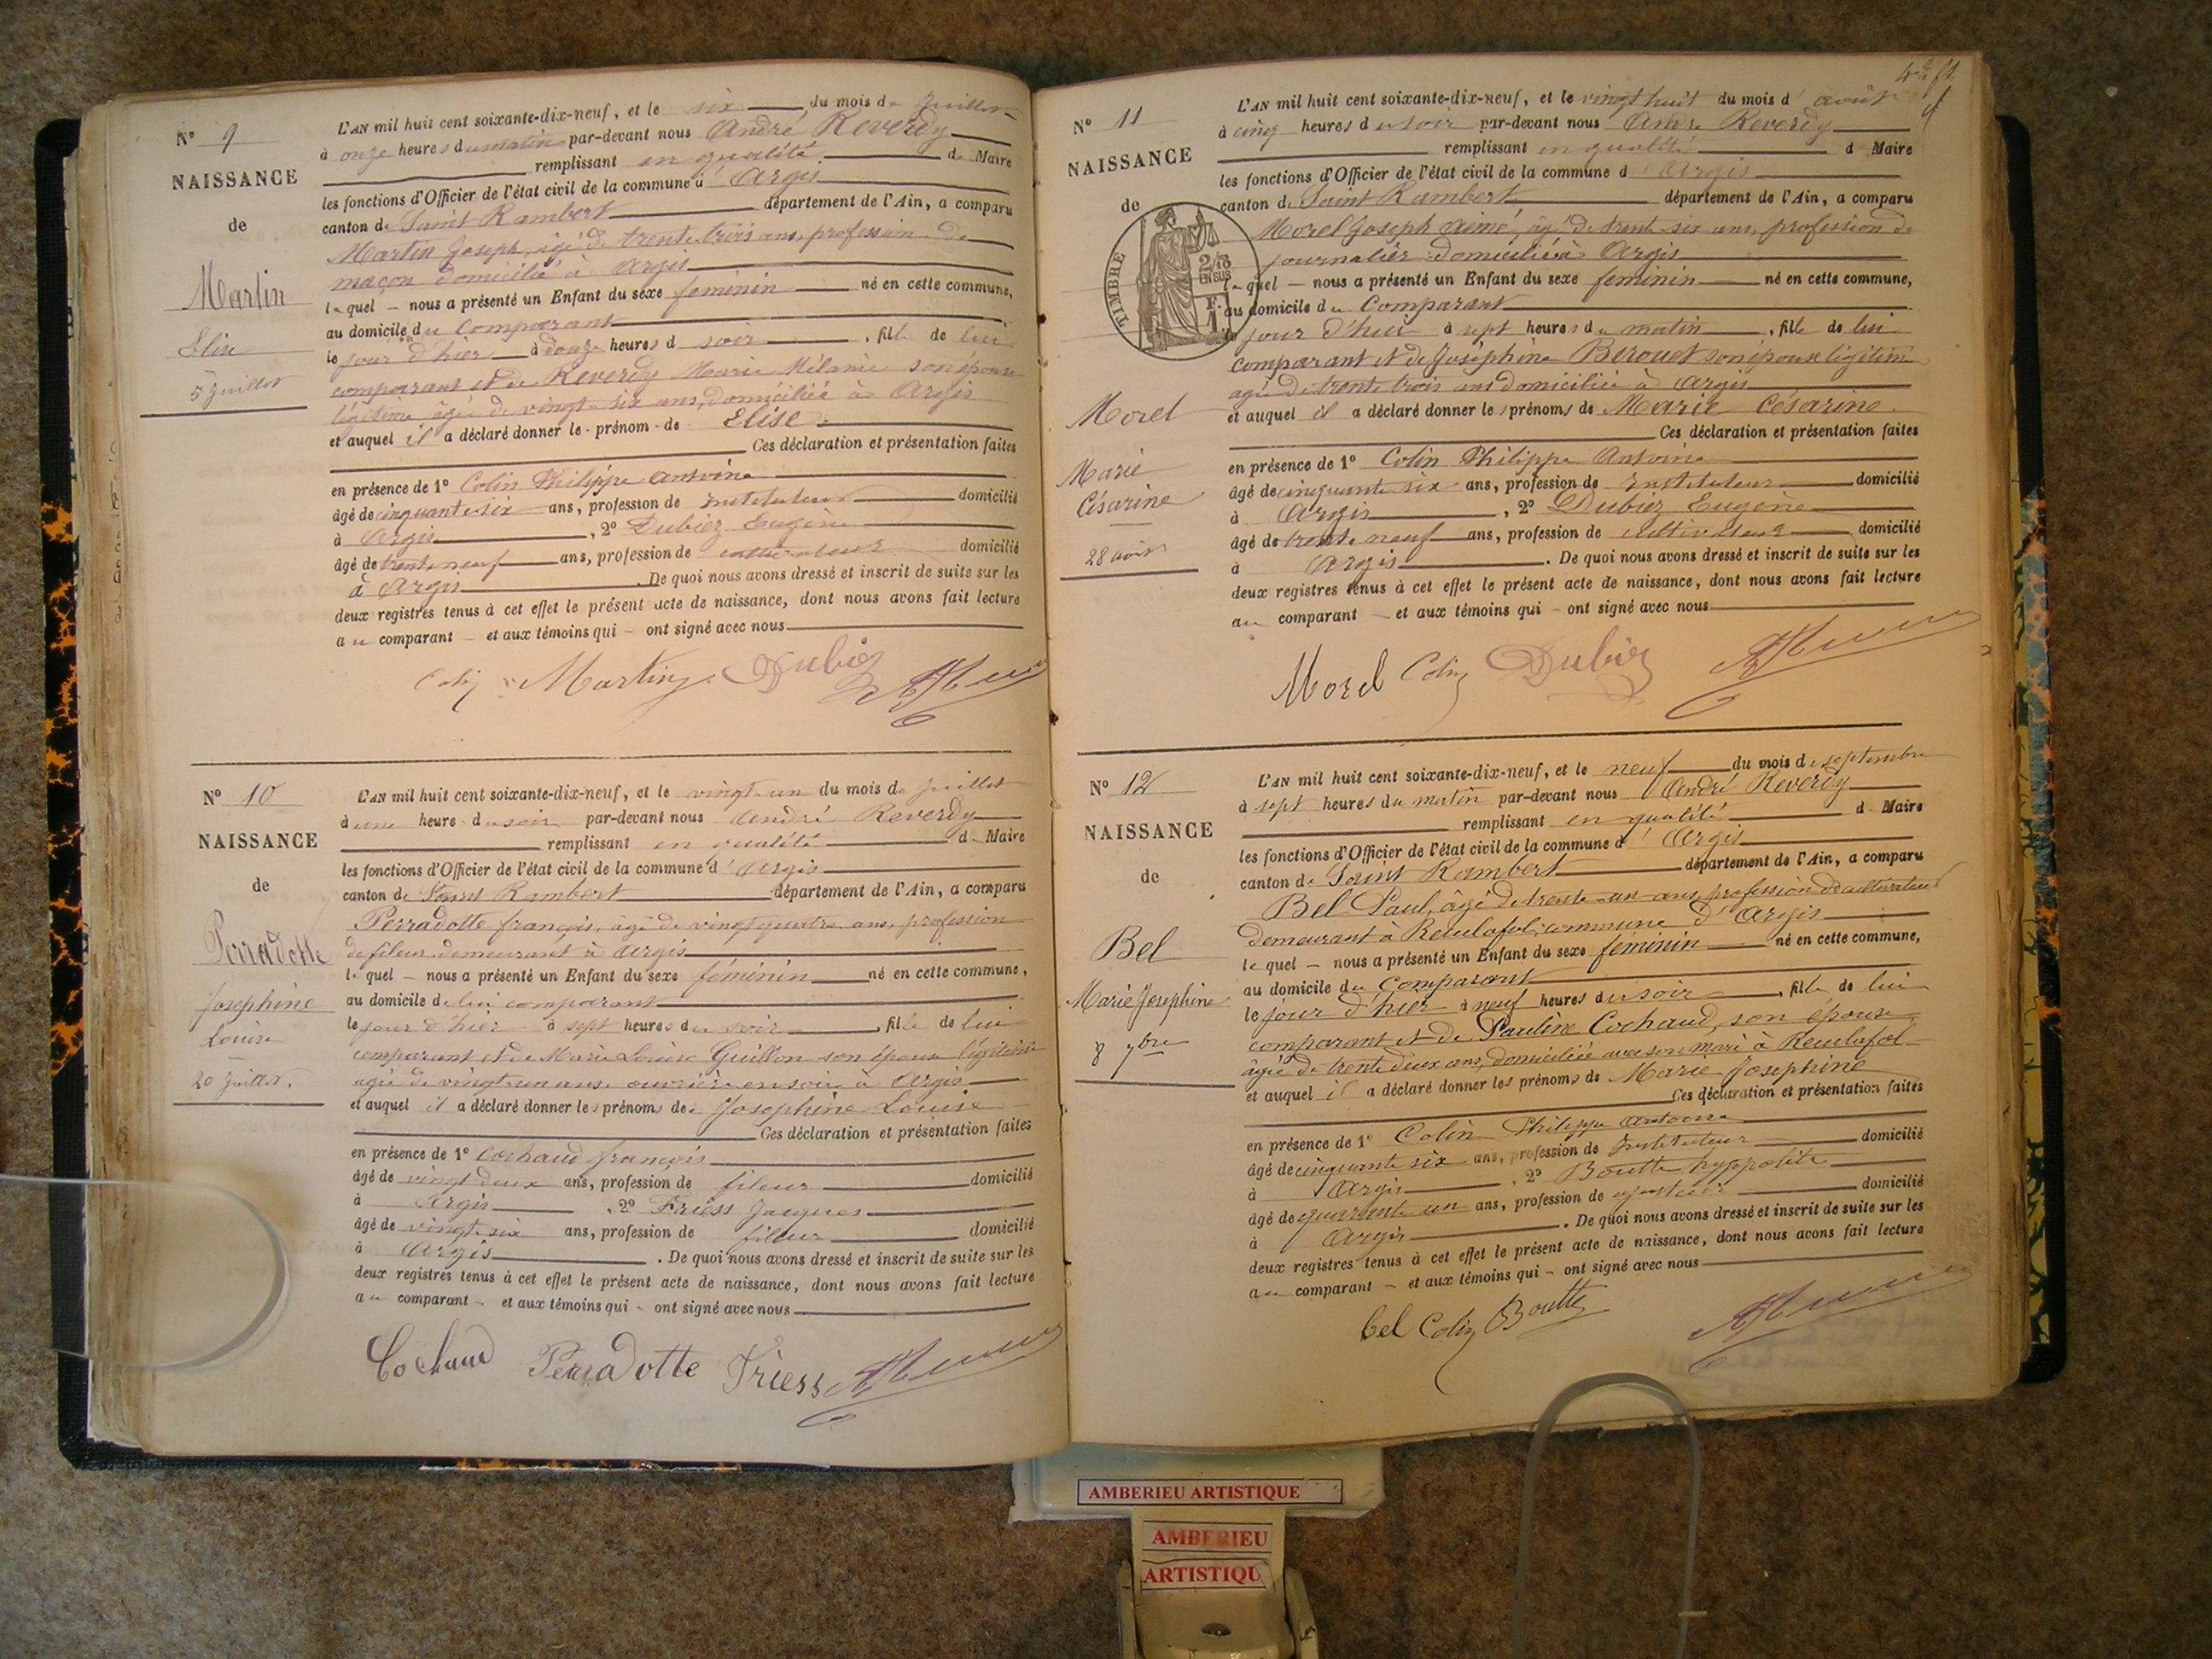 N° 9
NAISSANCE
de
Martin
Elise
5 Juillet
L'AN mil huit cent soixante-dix-neuf, et le six du mois de Juillet
à onze heures du matin par-devant nous André Reverdy
remplissant en qualité de Maire
les fonctions d'Officier de l'état civil de la commune d' Argis
canton de Saint Rambert département de l'Ain, a comparu
Martin Joseph, âgé de trente trois ans, profession de
maçon domicilié à Argis
lequel nous a présenté un Enfant du sexe féminin né en cette commune,
au domicile du Comparant
le jour d'hier à douze heures d soir, fille de lui
comparant et de Reverdy Marie Mélanie son épouse
légitime âgée de vingt-six ans, domiciliée à Argis
et auquel il a déclaré donner le prénom de Elise.
Ces déclaration et présentation faites
en présence de 1° Colin Philippe Antoine
âgé de cinquante-six ans, profession de Instituteur domicilié
à Argis, 2° Dubiez Eugène
âgé de trente neuf ans, profession de cultivateur domicilié
à Argis. De quoi nous avons dressé et inscrit de suite sur les
deux registres tenus à cet effet le présent acte de naissance, dont nous avons fait lecture
au comparant et aux témoins qui ont signé avec nous
Colin Martin Dubiez
N° 10
NAISSANCE
de
Perradotte
Joséphine
Louise
20 Juillet.
L'AN mil huit cent soixante-dix-neuf, et le vingt-un du mois de Juillet
à une heure du soir par-devant nous André Reverdy
remplissant en qualité d Maire
les fonctions d'Officier de l'état civil de la commune d' Argis
canton de Saint Rambert département de l'Ain, a comparu
Perradotte françois, âgé de vingt quatre ans, profession
de fileur demeurant à Argis
lequel nous a présenté un Enfant du sexe féminin né en cette commune,
au domicile de lui comparant
le jour d'hier à sept heures du soir, fille de lui
comparant et de Marie Louise Guillon son épouse légitime
âgée de vingt un ans ouvrière en soie à Argis
et auquel il a déclaré donner les prénoms de Joséphine Louise
Ces déclaration et présentation faites
en présence de 1° Cochaud françois
âgé de vingt deux ans, profession de fileur domicilié
à Argis, 2° Friess Jacques
âgé de vingt-six ans, profession de fileur domicilié
à Argis. De quoi nous avons dressé et inscrit de suite sur les
deux registres tenus à cet effet le présent acte de naissance, dont nous avons fait lecture
au comparant et aux témoins qui ont signé avec nous
Cochaud Perradotte Friess
N° 11
NAISSANCE
de
TIMBRE
2/10
EN SUS
Morel
Marie
Césarine
28 août
L'AN mil huit cent soixante-dix-neuf, et le vingt huit du mois d' août
à cinq heures du soir par-devant nous André Reverdy
remplissant en qualité d Maire
les fonctions d'Officier de l'état civil de la commune d' Argis
canton de Saint Rambert département de l'Ain, a comparu
Morel Joseph Aimé, âgé de trente-six ans, profession de
journalier domicilié à Argis
lequel nous a présenté un Enfant du sexe féminin né en cette commune,
au domicile du Comparant
le jour d'hui à sept heures du matin, fille de lui
comparant et de Joséphine Berouet son épouse légitime
âgée de trente trois ans domiciliée à Argis
et auquel il a déclaré donner les prénoms de Marie Césarine.
Ces déclaration et présentation faites
en présence de 1° Colin Philippe Antoine
âgé de cinquante six ans, profession de Instituteur domicilié
à Argis, 2° Dubiez Eugène
âgé de trente neuf ans, profession de cultivateur domicilié
à Argis. De quoi nous avons dressé et inscrit de suite sur les
deux registres tenus à cet effet le présent acte de naissance, dont nous avons fait lecture
au comparant et aux témoins qui ont signé avec nous
Morel Colin Dubiez
N° 12
NAISSANCE
de
Bel
Marie Joséphine
8 7bre
L'AN mil huit cent soixante-dix-neuf, et le neuf du mois de septembre
à sept heures du matin par-devant nous André Reverdy
remplissant en qualité d Maire
les fonctions d'Officier de l'état civil de la commune d' Argis
canton de Saint Rambert département de l'Ain, a comparu
Bel Paul, âgé de trente-un ans profession de cultivateur
demeurant à Reculafol, commune d'Argis
lequel nous a présenté un Enfant du sexe féminin né en cette commune,
au domicile du Comparant
le jour d'hier à neuf heures du soir, fille de lui
comparant et de Pauline Cochaud, son épouse
âgée de trente deux ans, domiciliée avec son mari à Reculafol
et auquel il a déclaré donner les prénoms de Marie Joséphine
Ces déclaration et présentation faites
en présence de 1° Colin Philippe Antoine
âgé de cinquante six ans, profession de Instituteur domicilié
à Argis, 2° Boutte hyppolite
âgé de quarante un ans, profession de domicilié
à Argis. De quoi nous avons dressé et inscrit de suite sur les
deux registres tenus à cet effet le présent acte de naissance, dont nous avons fait lecture
au comparant et aux témoins qui ont signé avec nous
bel Colin Boutte
AMBERIEU ARTISTIQUE
AMBERIEU
ARTISTIQU